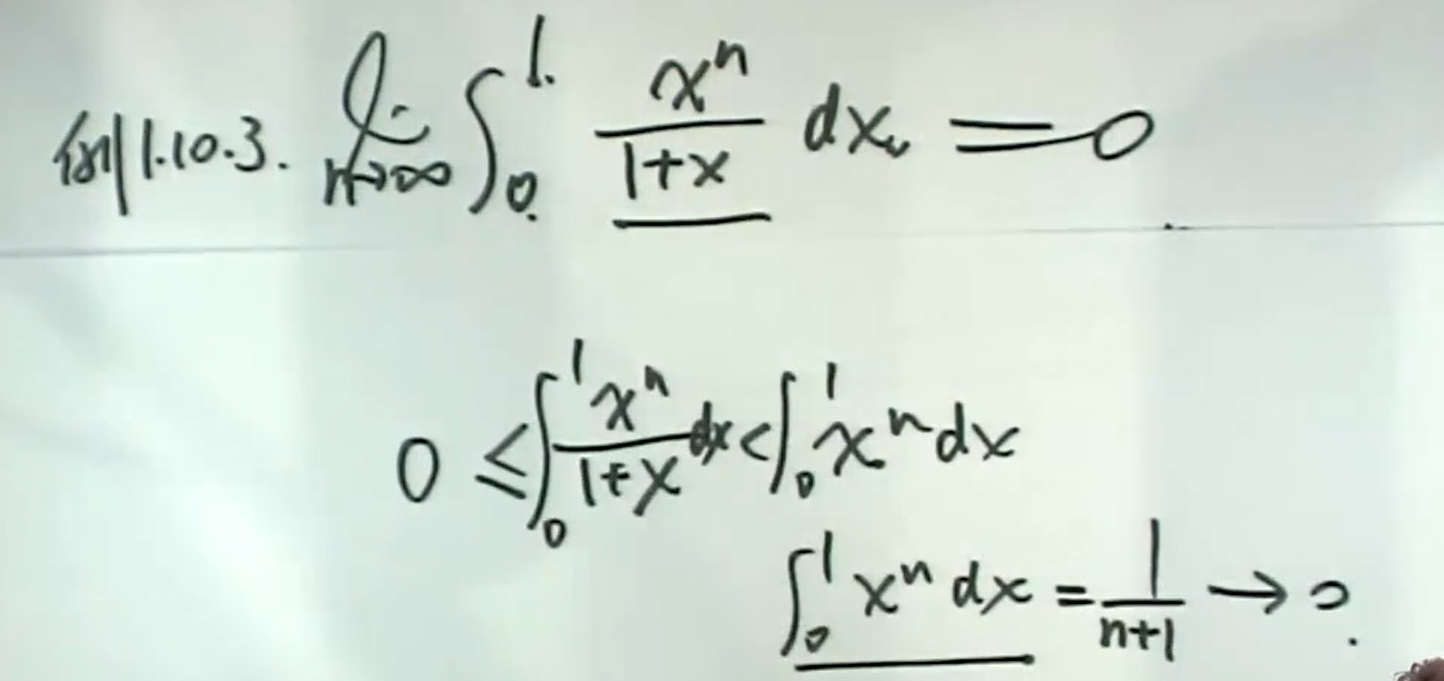 例1.10.3. lim_{n→∞} ∫_0^1 x^n/(1+x) dx = 0
0 ≤ ∫_0^1 x^n/(1+x) dx < ∫_0^1 x^n dx
∫_0^1 x^n dx = 1/(n+1) → 0.